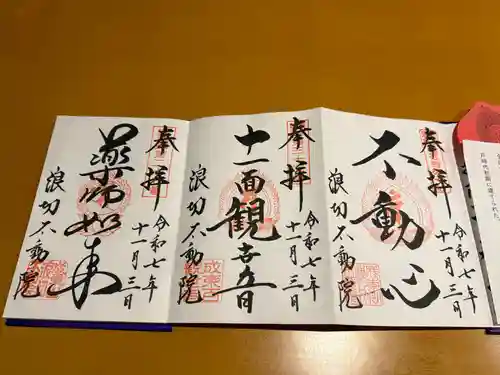 奉拝
令和七年
十一月三日
不動心
浪切不動院
奉拝
令和七年
十一月三日
十一面観世音
浪切不動院
奉拝
令和七年
十一月三日
薬師如来
浪切不動院